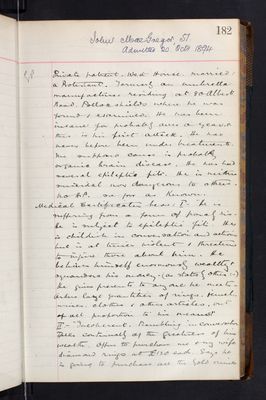 182
John MacGregor, 51
Admitted 20 Octr 1894
Private patient. West House. married.
a Protestant. Formerly an umbrella
manufacturer residing at 30 Albert
Road, Pollokshields where he was
found & examined. He has been
insane for probably over a year &
this is his first attack. He has
never before been under treatment.
The supposed cause is probably
organic brain disease. He has had
several epileptic fits. He is neither
suicidal nor dangerous to others.
so far as known.
Medical Certificates bear: I- he is
suffering from a form of paralysis.
he is subject to epileptic fits. He
is childish in conversation and
but is at times violent & threatens
to injure those about him. He
believes himself enormously wealthy &
squanders his money (so states others)
he gives presents to anyone he meets
orders large quantities of rings, hats,
wines, clothes & other articles, out
of all proportion to his means.
II- Incoherent. Rambling in conversation
Talks continually of the greatness of his
wealth. Offers to purchase me & my wife
diamond rings at £150 each. Says he
is going to purchase all the Gold mines